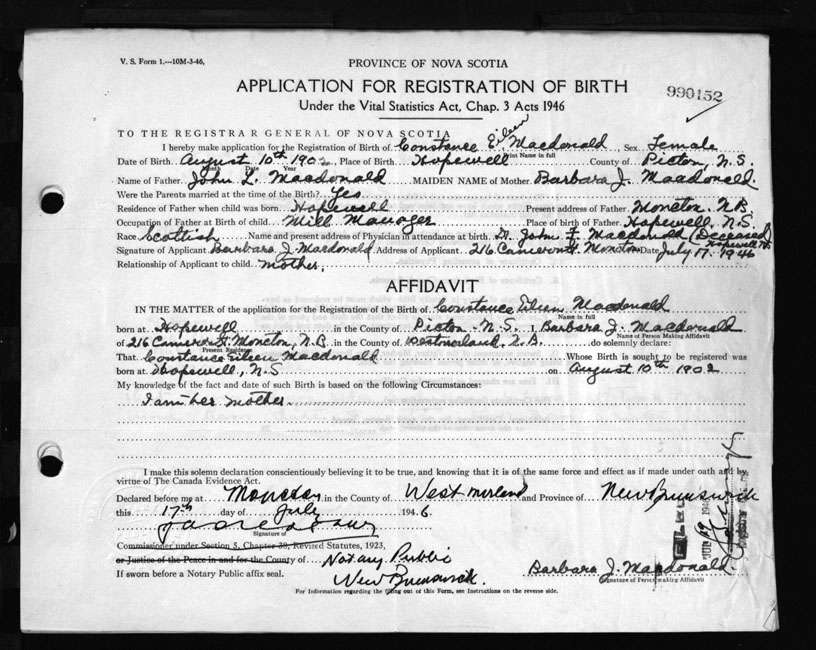 V. S. Form 1.—10M-3-46,
PROVINCE OF NOVA SCOTIA
APPLICATION FOR REGISTRATION OF BIRTH
990152
Under the Vital Statistics Act, Chap. 3 Acts 1946
TO THE REGISTRAR GENERAL OF NOVA SCOTIA
I hereby make application for the Registration of Birth of Constance Eileen Macdonald, Sex Female
Print Name in full
Date of Birth August 10th 1902, Place of Birth Hopewell County of Pictou, N.S.
Month Date Year
Name of Father John L. Macdonald MAIDEN NAME of Mother Barbara J. Macdonald.
Were the Parents married at the time of the Birth? Yes
Residence of Father when child was born Hopewell Present address of Father Moncton, N.B.
Occupation of Father at Birth of child Mill Manager Place of birth of Father Hopewell, N.S.
Race Scottish Name and present address of Physician in attendance at birth Dr. John F. Macdonald (Deceased)
Hopewell N.S.
Signature of Applicant Barbara J. Macdonald Address of Applicant 216 Cameron St. Moncton Date July 17, 1946
Relationship of Applicant to child mother.
AFFIDAVIT
IN THE MATTER of the application for the Registration of the Birth of Constance Eileen Macdonald
Name in full
born at Hopewell in the County of Pictou - N.S. I, Barbara J. Macdonald
Name of Person Making Affidavit
of 216 Cameron St Moncton, N.B. in the County of Westmorland, N.B. do solemnly declare:
Present Residence
That Constance Eileen Macdonald Whose Birth is sought to be registered was
born at Hopewell, N.S on August 10th 1902
My knowledge of the fact and date of such Birth is based on the following Circumstances:
I am her mother.
I make this solemn declaration conscientiously believing it to be true, and knowing that it is of the same force and effect as if made under oath and by
virtue of The Canada Evidence Act.
Declared before me at Moncton in the County of Westmorland and Province of New Brunswick
this 17th day of July 1946
Signature of
Commissioner under Section 5, Chapter 38, Revised Statutes, 1923,
or Justice of the Peace in and for the County of Notary Public
If sworn before a Notary Public affix seal. New Brunswick.
Barbara J. Macdonald.
Signature of Person making Affidavit
For Information regarding the filling out of this Form, see Instructions on the reverse side.
FILED
1946